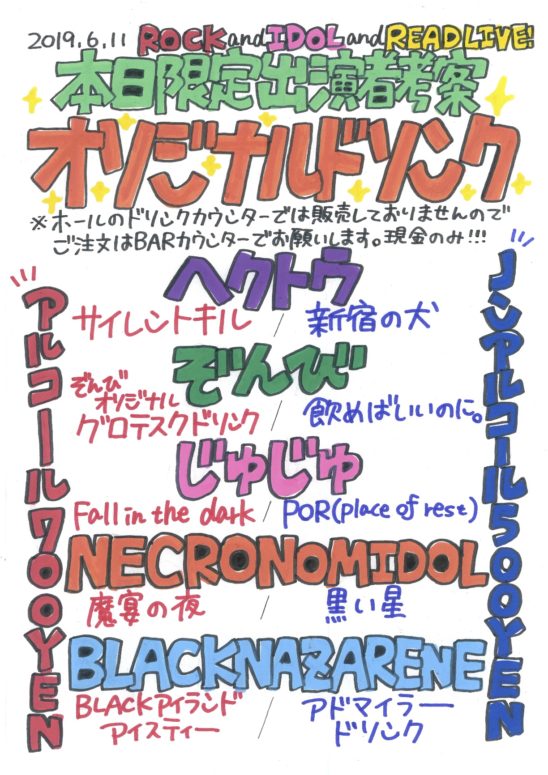 2019.6.11 ROCK and IDOL and READ LIVE!
本日限定出演者考案
オリジナルドリンク
※ホールのドリンクカウンターでは販売しておりませんので
ご注文はBARカウンターでお願いします。現金のみ!!!
アルコール700YEN
ノンアルコール500YEN
ヘクトウ
サイレントキル / 新宿の犬
ぞんび
ぞんび
オリジナル
グロテスクドリンク / 飲めばいいのに。
じゅじゅ
Fall in the dark / POR(place of rest)
NECRONOMIDOL
魔宴の夜 / 黒い星
BLACKNAZARENE
BLACKアイランド
アイスティー / アドマイラー
ドリンク